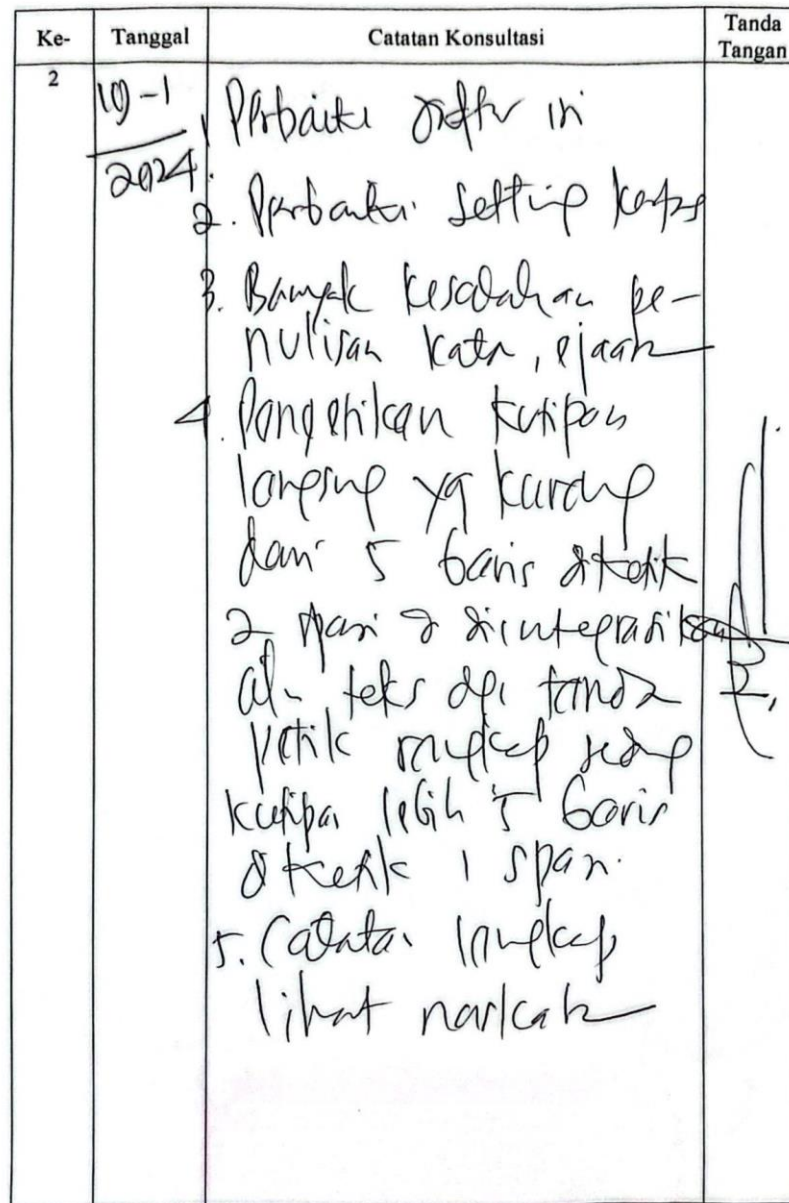 Ke- Tanggal Catatan Konsultasi Tanda Tangan
2 19-1
2024
1. Perbaiki daftar isi
2. Perbaiki setting kertas
3. Banyak kesalahan pe-
nulisan kata, ejaan
4. Pengetikan kutipan
langsung yg kurang
dari 5 baris diketik
2 spasi & diintegrasikan
dlm teks dgn tanda
petik rangkap sedang
kutipan lebih 5 baris
diketik 1 spasi.
5. Catatan lengkap
lihat naskah